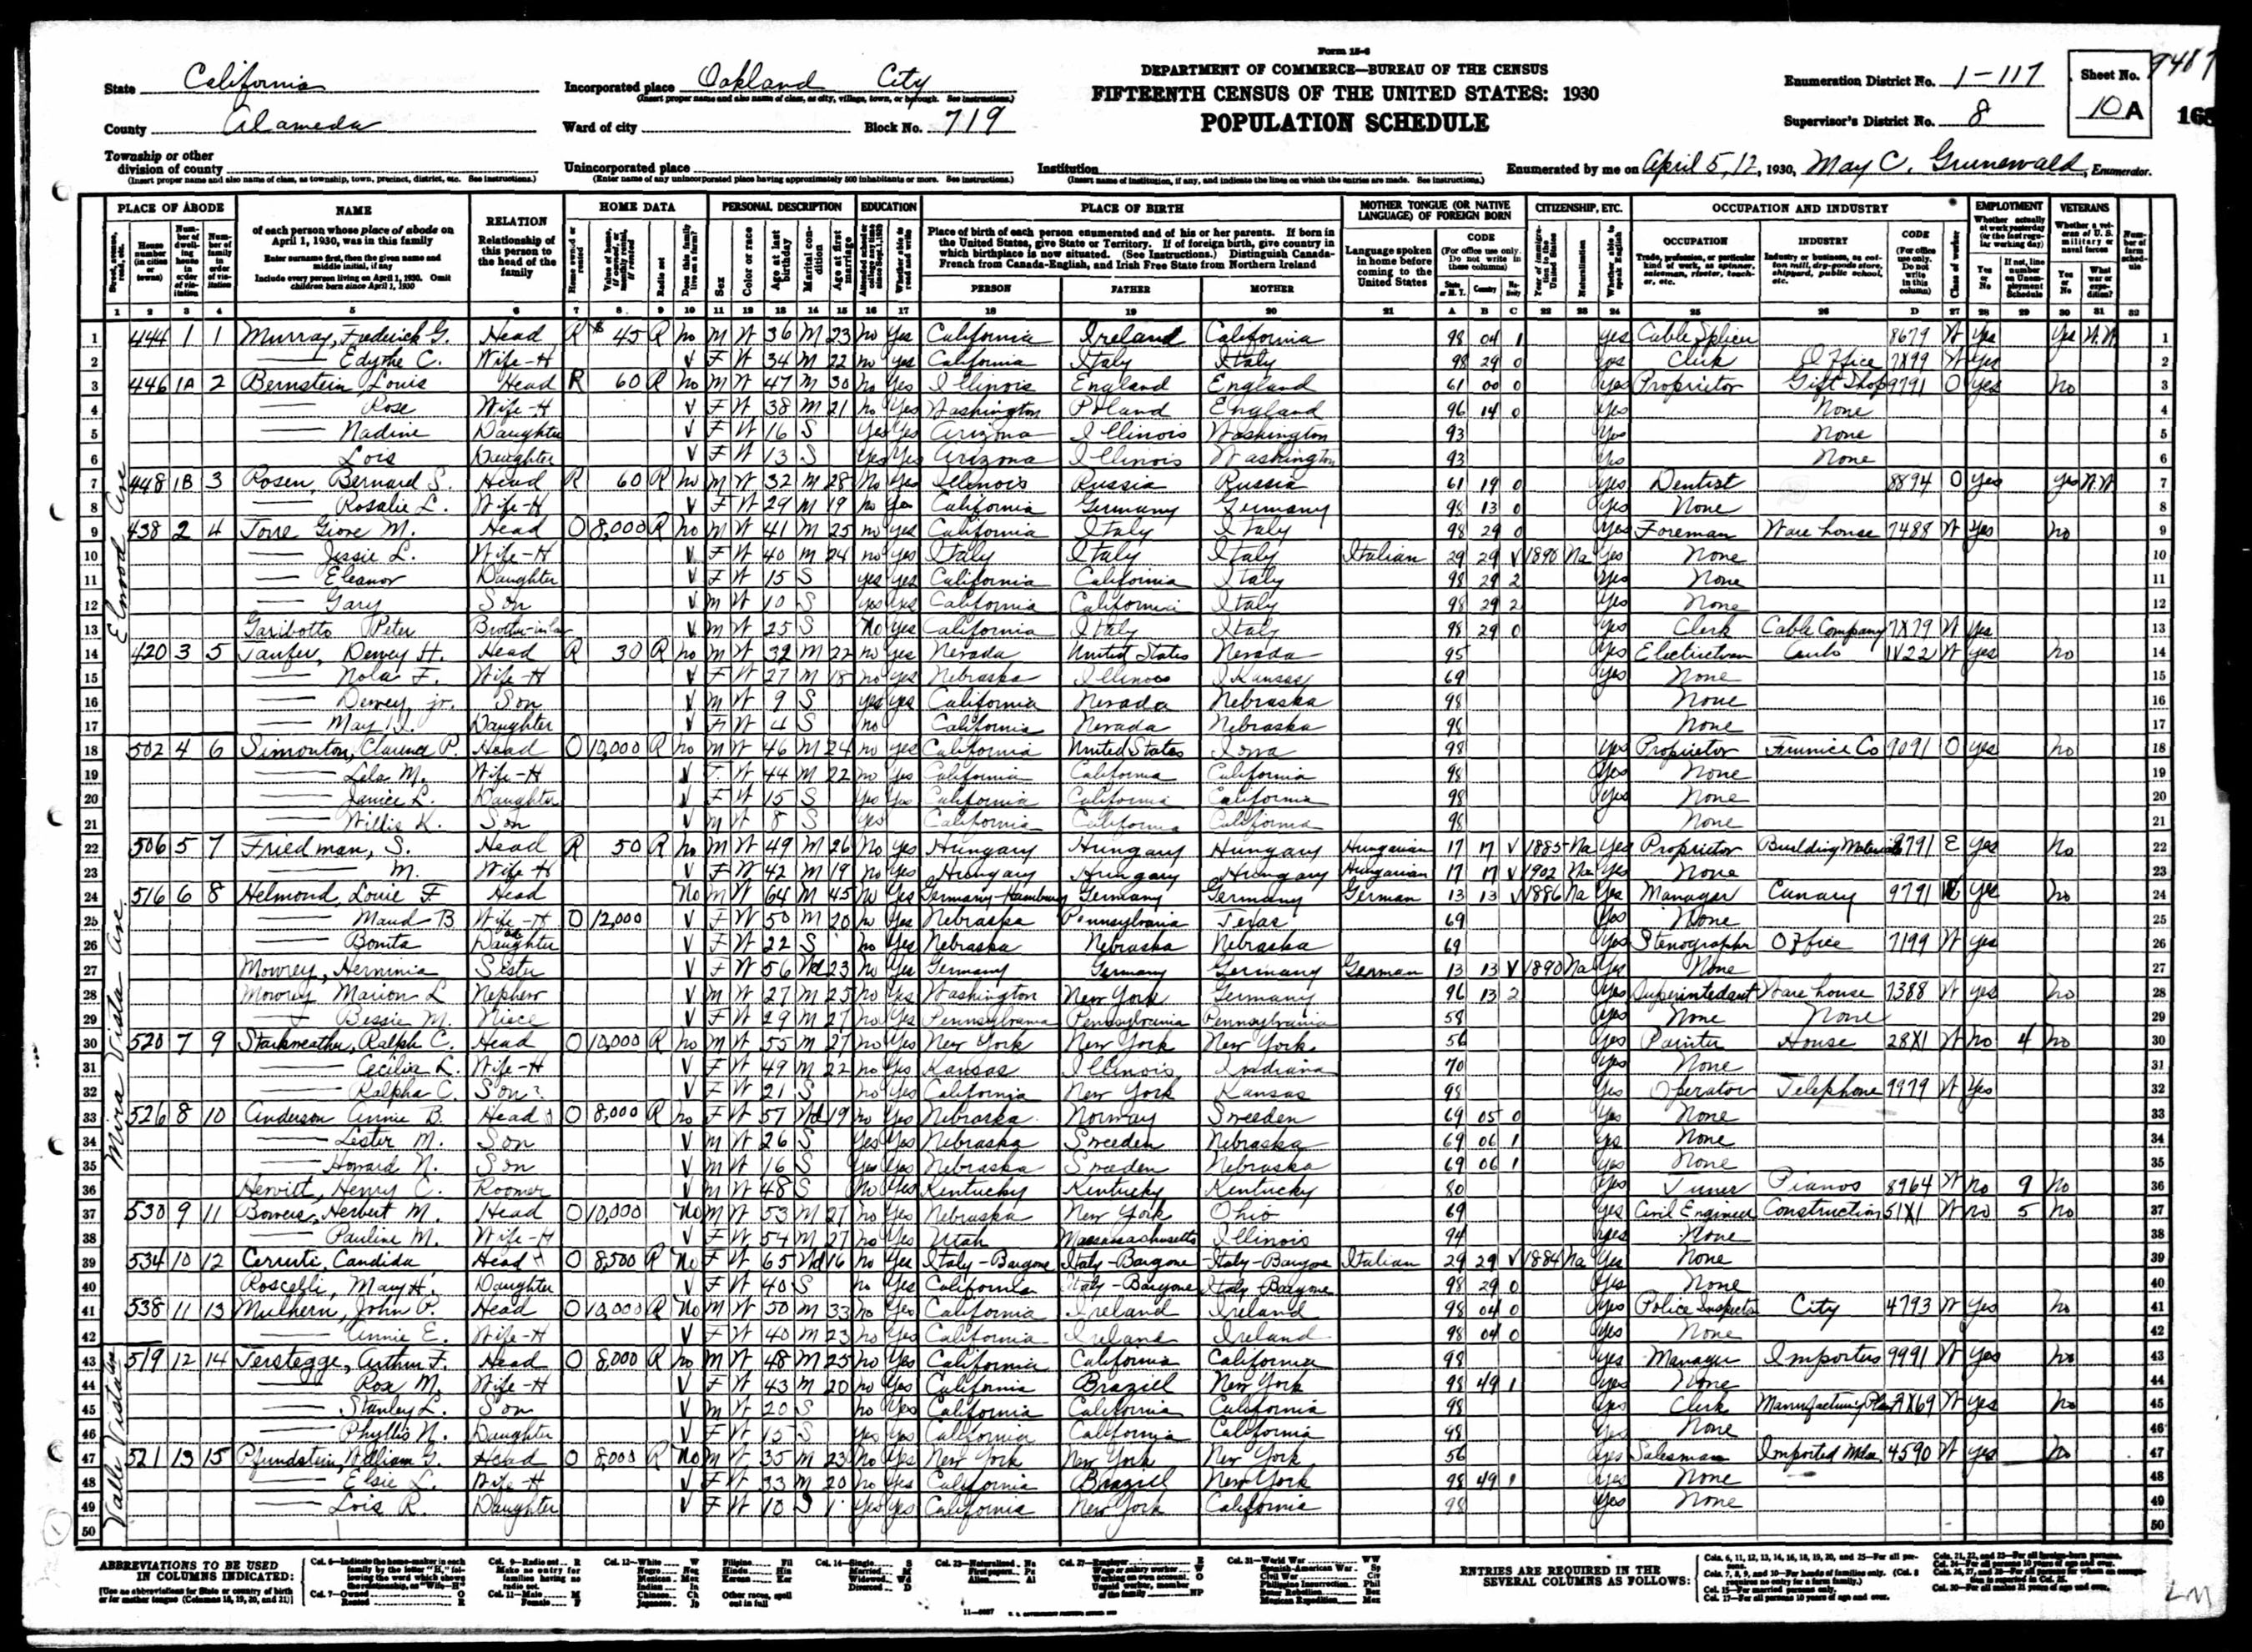 Form 15-6
DEPARTMENT OF COMMERCE—BUREAU OF THE CENSUS
FIFTEENTH CENSUS OF THE UNITED STATES: 1930
POPULATION SCHEDULE
State California
Incorporated place Oakland City
(Insert proper name and also name of class, as city, village, town, or borough. See instructions.)
Enumeration District No. 1-117
Sheet No.
County Alameda
Ward of city
Block No. 719
Supervisor's District No. 8
10 A
Township or other
division of county
(Insert proper name and also name of class, as township, town, precinct, district, etc. See instructions.)
Unincorporated place
(Enter name of any unincorporated place having approximately 500 inhabitants or more. See instructions.)
Institution
(Insert name of institution, if any, and indicate the lines on which the entries are made. See instructions.)
Enumerated by me on April 5, 12, 1930, May C. Grunewald, Enumerator.
PLACE OF ABODE NAME RELATION HOME DATA PERSONAL DESCRIPTION EDUCATION PLACE OF BIRTH MOTHER TONGUE (OR NATIVE LANGUAGE) OF FOREIGN BORN CITIZENSHIP, ETC. OCCUPATION AND INDUSTRY EMPLOYMENT VETERANS
PERSON FATHER MOTHER OCCUPATION INDUSTRY CODE
1 2 3 4 5 6 7 8 9 10 11 12 13 14 15 16 17 18 19 20 21 A B C 22 23 24 25 26 D 27 28 29 30 31 32
Elmood Ave
1 444 1 1 Murray, Frederick G. Head R $45 R no M W 36 M 23 no Yes California Ireland California 98 04 1 yes Cable Splicer 8679 W Yes Yes W.W. 1
2 Edythe C. Wife-H V F W 34 M 22 no yes California Italy Italy 98 29 0 yes Clerk Office 7X99 W Yes 2
3 446 1A 2 Bernstein, Louis Head R 60 R no M W 47 M 30 no Yes Illinois England England 61 00 0 Yes Proprietor Gift Shop 9791 O yes no 3
4 Rose Wife-H V F W 38 M 21 no Yes Washington Poland England 96 14 0 Yes None 4
5 Nadine Daughter V F W 16 S Yes Yes Arizona Illinois Washington 93 Yes None 5
6 Lois Daughter V F W 13 S Yes Yes Arizona Illinois Washington 93 Yes None 6
7 448 1B 3 Rosen, Bernard S. Head R 60 R no M W 32 M 28 No Yes Illinois Russia Russia 61 19 0 Yes Dentist 8894 O yes yes W.W 7
8 Rosalie L. Wife-H V F W 29 M 19 no Yes California Germany Germany 98 13 0 yes None 8
9 438 2 4 Giove M. Head O 8,000 R no M W 41 M 25 no yes California Italy Italy 98 29 0 Yes Foreman Ware house 7488 W Yes no 9
10 Jessie L. Wife-H V F W 40 M 24 no yes Italy Italy Italy Italian 29 29 V 1890 Na Yes None 10
11 Eleanor Daughter V F W 15 S yes yes California California Italy 98 29 2 Yes None 11
12 Gary Son V M W 10 S yes yes California California Italy 98 29 2 Yes None 12
13 Garibotto Peter Brother-in-law V M W 25 S No Yes California Italy Italy 98 29 0 Yes Clerk Cable Company 7X79 W Yes 13
14 420 3 5 Dewey H. Head R 30 R no M W 32 M 22 no yes Nevada United States Nevada 95 Yes Electrician Auto 1V22 W yes no 14
15 Nola F. Wife-H V F W 27 M 18 no yes Nebraska Illinois Kansas 69 yes None 15
16 Dewey, jr. Son V M W 9 S yes yes California Nevada Nebraska 98 None 16
17 May Daughter V F W 4 S no California Nevada Nebraska 98 None 17
Mira Vista Ave.
18 502 4 6 Simonton, Clarence P. Head O 10,000 R no M W 46 M 24 no yes California United States Iowa 98 Yes Proprietor Furnice Co 9091 O yes no 18
19 Lela M. Wife-H V F W 44 M 22 no Yes California California California 98 Yes None 19
20 Janice L. Daughter V F W 15 S Yes Yes California California California 98 yes None 20
21 Willis K. Son V M W 8 S Yes California California California 98 None 21
22 506 5 7 Friedman, S. Head R 50 R no M W 49 M 26 No yes Hungary Hungary Hungary Hungarian 17 17 V 1885 Na Yes Proprietor Building Materials 9791 E Yes No 22
23 M. Wife-H V F W 42 M 19 no Yes Hungary Hungary Hungary Hungarian 17 17 V 1902 Na Yes None 23
24 516 6 8 Helmond, Louie F Head No M W 64 M 45 no Yes Germany-Hamburg Germany Germany German 13 13 V 1886 Na Yes Manager Canary 9791 yes no 24
25 Maud B Wife-H O 12,000 V F W 50 M 20 no Yes Nebraska Pennsylvania Texas 69 Yes None 25
26 Bonita Daughter V F W 22 S no Yes Nebraska Nebraska Nebraska 69 Yes Stenographer Office 7199 W yes 26
27 Mowrey, Herminia Sister V F W 56 Wd 23 no Yes Germany Germany Germany German 13 13 V 1890 Na Yes None 27
28 Mowrey Marion L Nephew V M W 27 M 25 no Yes Washington New York Germany 96 13 2 Yes Superintedant Ware house 7388 W yes no 28
29 Bessie M. Niece V F W 29 M 27 no Yes Pennsylvania Pennsylvania Pennsylvania 58 Yes None None 29
30 520 7 9 Starkweather, Ralph C. Head O 10,000 R no M W 55 M 27 no Yes New York New York New York 56 Yes Painter House 28X1 W no 4 no 30
31 Cecilia L. Wife-H V F W 49 M 22 no Yes Kansas Illinois Indiana 70 yes None 31
32 Ralpha C. Son? V F W 21 S no Yes California New York Kansas 98 Yes Operator Telephone 7979 W Yes 32
33 526 8 10 Anderson Annie B. Head O 8,000 R no F W 57 Wd 19 no Yes Nebraska Norway Sweeden 69 05 0 Yes None 33
34 Lester M. Son V M W 26 S Yes Yes Nebraska Sweeden Nebraska 69 06 1 Yes None 34
35 Howard N. Son V M W 16 S Yes Yes Nebraska Sweeden Nebraska 69 06 1 yes None 35
36 Hewitt, Henry C. Roomer V M W 48 S no Yes Kentucky Kentucky Kentucky 80 Yes Tuner Pianos 8964 W no 9 No 36
37 530 9 11 Bowers, Herbert M. Head O 10,000 No M W 53 M 27 no Yes Nebraska New York Ohio 69 yes Civil Engineer Construction 51X1 W no 5 no 37
38 Pauline M. Wife-H V F W 54 M 27 no Yes Utah Massassachusetts Illinois 94 yes None 38
39 534 10 12 Cerruti, Candida Head O 8,500 R No F W 65 Wd 16 no Yes Italy-Bargone Italy-Bargone Italy-Bargone Italian 29 29 V 1884 Na Yes None 39
40 Roscelli, Mary H. Daughter V F W 40 S no Yes California Italy-Bargone Italy-Bargone 98 29 0 Yes None 40
41 538 11 13 Mulhern, John P. Head O 10,000 R No M W 50 M 33 no Yes California Ireland Ireland 98 04 0 Yes Police Inspector City 4793 W Yes no 41
42 Annie E. Wife-H V F W 40 M 23 no Yes California Ireland Ireland 98 04 0 Yes None 42
Valle Vista Ave
43 519 12 14 Terstegge, Arthur F. Head O 8,000 R no M W 48 M 25 no Yes California California California 98 yes Manager Importers 9991 W Yes no 43
44 Rox M. Wife-H V F W 43 M 20 no Yes California Braziel New York 98 49 1 yes None 44
45 Stanley L. Son V M W 20 S no Yes California California California 98 Yes Clerk Manufacturing Plant 7X69 W yes no 45
46 Phyllis N. Daughter V F W 15 S Yes Yes California California California 98 Yes None 46
47 521 13 15 Pfundstein, William G. Head O 8,000 R No M W 35 M 23 no Yes New York New York New York 56 yes Salesman Imported Mdse 4590 W yes no 47
48 Elsie L. Wife-H V F W 33 M 20 no Yes California Braziel New York 98 49 1 yes None 48
49 Lois R. Daughter V F W 10 S Yes Yes California New York California 98 Yes None 49
50 50
ABBREVIATIONS TO BE USED
IN COLUMNS INDICATED:
ENTRIES ARE REQUIRED IN THE
SEVERAL COLUMNS AS FOLLOWS: